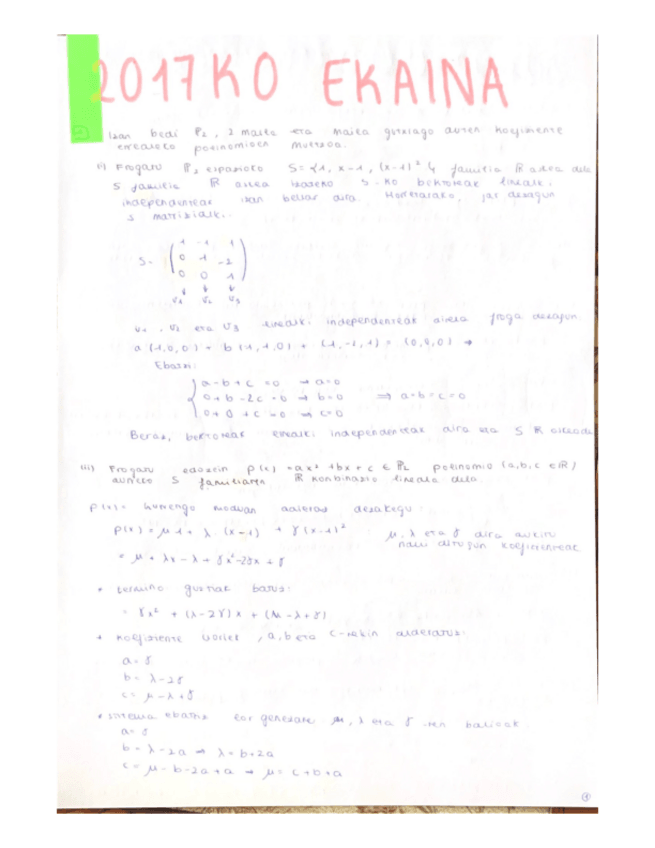 2017KO EKAINA
Izan bedi P₂, 2 maila eta maila gutxiago duten koefiziente
errealeko polinomioen multzoa.
i) Frogatu P₂ espazioko S = {1, x-1, (x-1)² } familia R askea dela
S familia R askea izateko S-ko bektoreak linealki
independenteak izan behar dira. Horretarako, jar dezagun
S matrizialki.
S = ( 1 -1 1
0 1 -2
0 0 1 )
v₁ v₂ v₃
v₁, v₂ eta v₃ linealki independenteak direla froga dezagun.
a (1,0,0) + b (-1,1,0) + (1,-2,1) = (0,0,0) →
Ebatzi:
a-b+c=0 → a=0
0+b-2c=0 → b=0 ⇒ a=b=c=0
0+0+c=0 → c=0
Beraz, bektoreak linealki independenteak dira eta S R askea da
iii) Frogatu edozein p(x) = ax² + bx + c ∈ P₂ polinomio (a,b,c ∈ R)
S familiaren R konbinazio lineala dela.
p(x) = hurrengo moduan dezakegu:
p(x) = μ·1 + λ·(x-1) + γ(x-1)² : μ, λ eta γ dira aurkitu
nahi ditugun koefizienteak
= μ + λx - λ + γx² - 2γx + γ
• termino guztiak batuz:
= γx² + (λ-2γ)x + (μ-λ+γ)
• koefiziente, a, b eta c-rekin alderatuz:
a = γ
b = λ-2γ
c = μ-λ+γ
• sistema ebatziz μ, λ eta γ-ren balioak
a = γ
b = λ-2a → λ = b+2a
c = μ-b-2a+a → μ = c+b+a
1